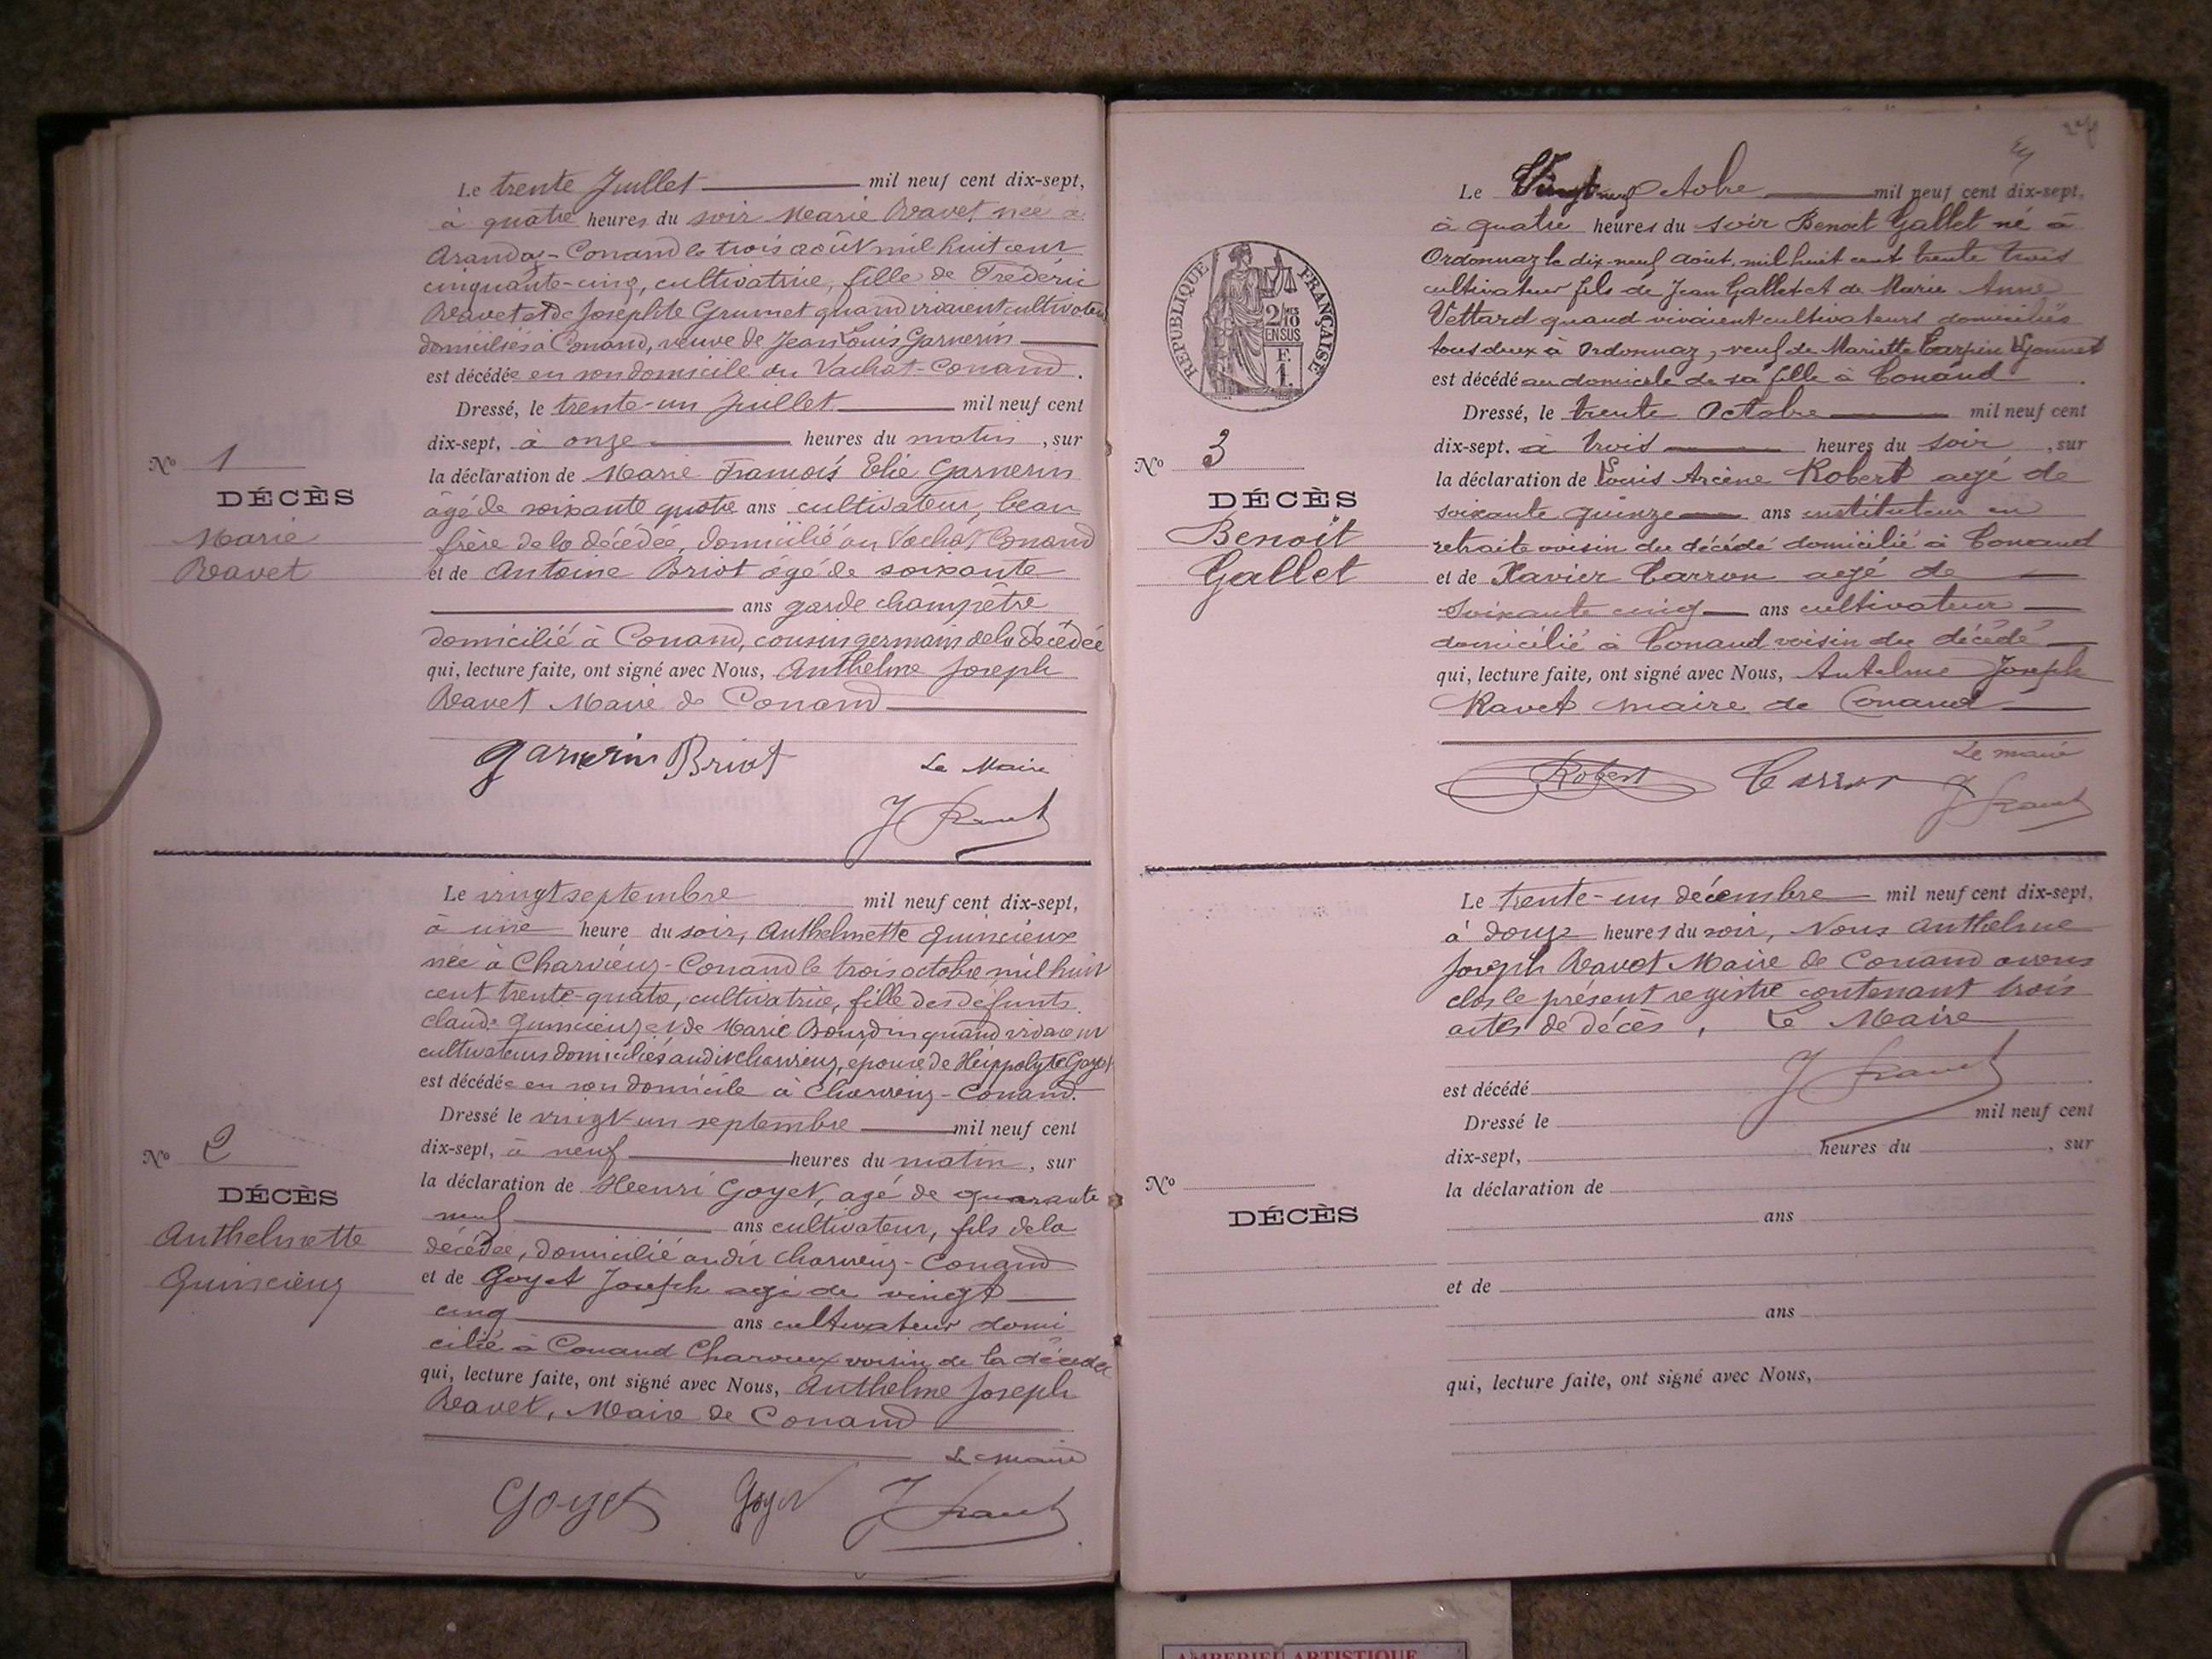 Le trente Juillet mil neuf cent dix-sept,
à quatre heures du soir Marie Ravet née à
Arandas-Conand le trois août mil huit cent
cinquante-cinq, cultivatrice, fille de Frédéric
Ravet et de Josephte Grumet quand vivaient cultivateurs
domiciliés à Conand, veuve de Jean Louis Garnerin
est décédée en son domicile au Vachat-Conand.
Dressé, le trente-un Juillet mil neuf cent
dix-sept, à onze heures du matin, sur
la déclaration de Marie François Elie Garnerin
âgé de soixante quatre ans cultivateur, beau
frère de la décédée, domicilié au Vachat Conand
et de Antoine Briot âgé de soixante
ans garde champêtre
domicilié à Conand, cousin germain de la décédée
qui, lecture faite, ont signé avec Nous, Anthelme Joseph
Ravet Maire de Conand
Nº 1
DÉCÈS
Marie
Ravet
Garnerin Briot Le Maire
J Ravet
Le vingt septembre mil neuf cent dix-sept,
à une heure du soir, Anthelmette Quincieux
née à Charvieux-Conand le trois octobre mil huit
cent trente-quatre, cultivatrice, fille des défunts
Claude Quincieux et de Marie Bourdin quand vivaient
cultivateurs domiciliés audit Charvieux, épouse de Hippolyte Goyet
est décédée en son domicile à Charvieux-Conand.
Dressé le vingt-un septembre mil neuf cent
dix-sept, à neuf heures du matin, sur
la déclaration de Henri Goyet, agé de quarante
neuf ans cultivateur, fils de la
décédée, domicilié audit Charvieux-Conand
et de Goyet Joseph agé de vingt
cinq ans cultivateur domi
cilié à Conand Charvieux voisin de la décédée
qui, lecture faite, ont signé avec Nous, Anthelme Joseph
Ravet, Maire de Conand
Nº 2
DÉCÈS
Anthelmette
Quincieux
Le Maire
Goyet Goyet J Ravet
Le Vingt neuf Octobre mil neuf cent dix-sept,
à quatre heures du soir Benoit Gallet né à
Ordonnaz le dix-neuf Août mil huit cent trente trois
cultivateur fils de Jean Gallet et de Marie Anne
Vettard quand vivaient cultivateurs domiciliés
tous deux à Ordonnaz, veuf de Mariette Carpin Lyonnet
est décédé au domicile de sa fille à Conand.
Dressé, le trente Octobre mil neuf cent
dix-sept. à trois heures du soir, sur
la déclaration de Louis Arcène Robert agé de
soixante quinze ans instituteur en
retraite voisin du décédé domicilié à Conand
et de Xavier Carron agé de
soixante cinq ans cultivateur
domicilié à Conand voisin du décédé
qui, lecture faite, ont signé avec Nous, Antelme Joseph
Ravet maire de Conand
RÉPUBLIQUE FRANÇAISE
2/10
EN SUS
F.
1.
Nº 3
DÉCÈS
Benoit
Gallet
Le maire
Robert Carron J Ravet
Le trente-un décembre mil neuf cent dix-sept,
à douze heures du soir, Nous Anthelme
Joseph Ravet Maire de Conand avons
clos le présent registre contenant trois
actes de décès. Le Maire
J Ravet
est décédé
Dressé le mil neuf cent
dix-sept, heures du , sur
la déclaration de
ans
et de
ans
qui, lecture faite, ont signé avec Nous,
Nº
DÉCÈS
AMBERIEU ARTISTIQUE